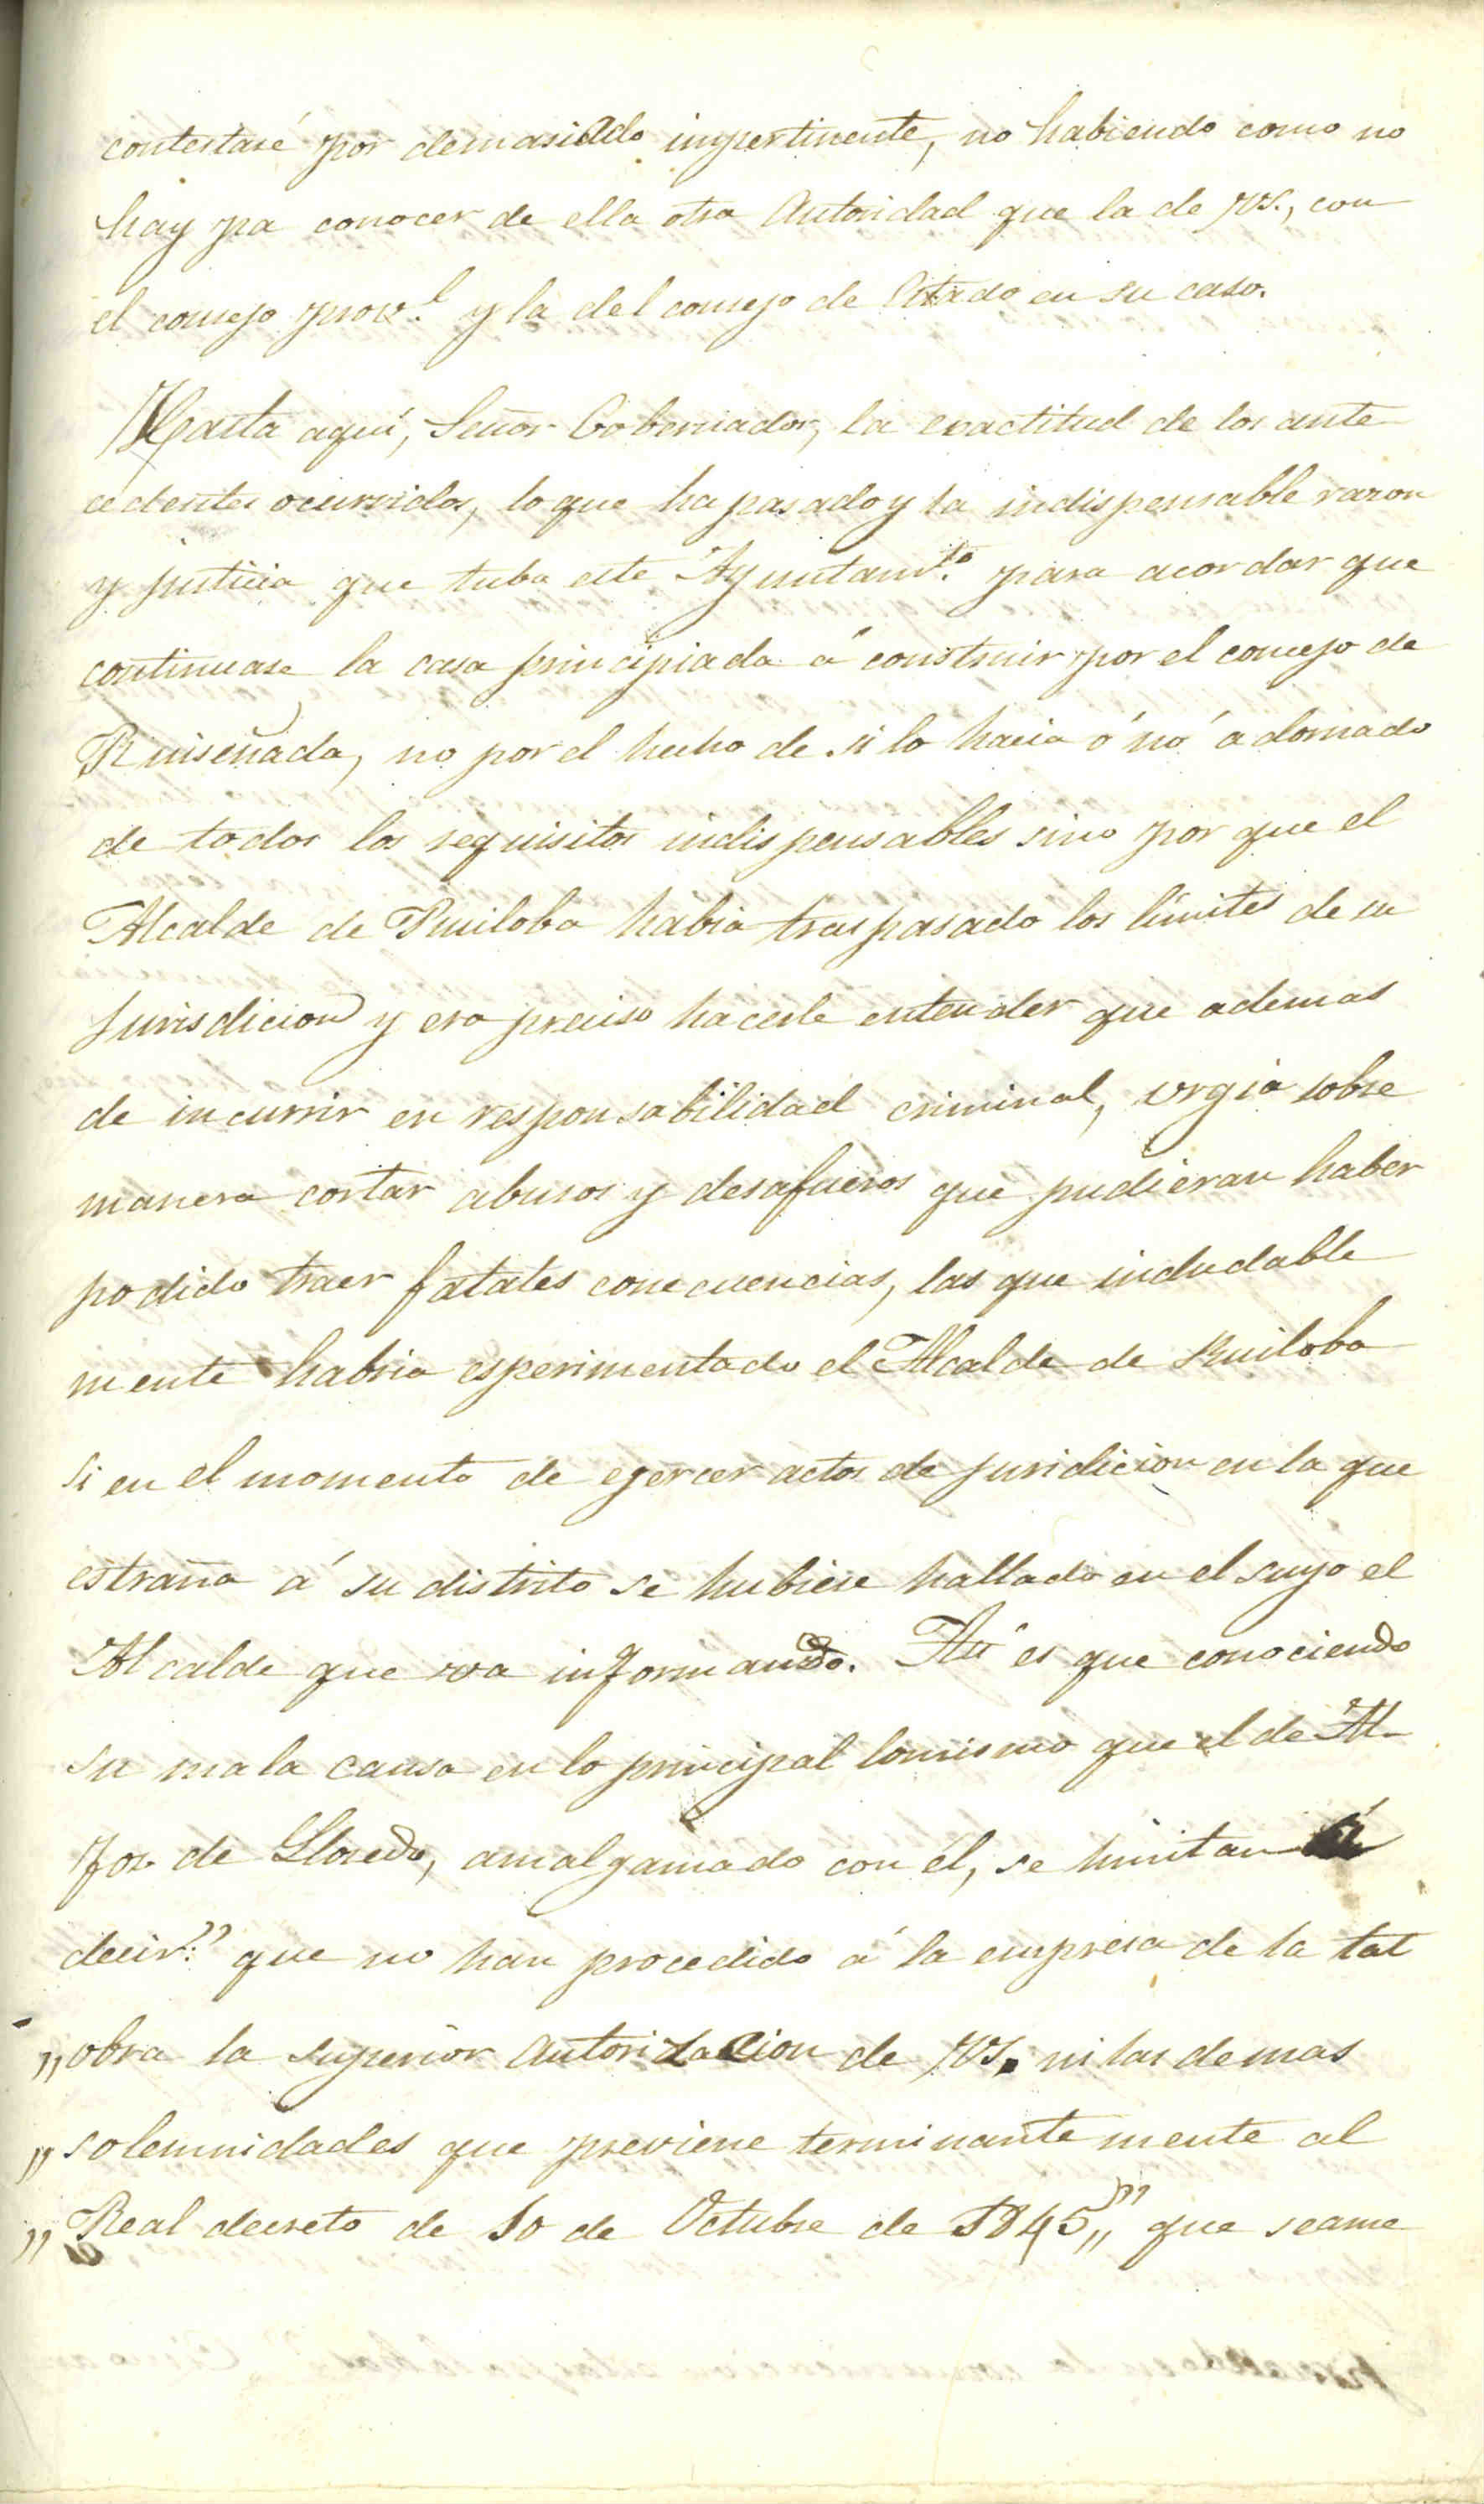 contestaré por demasiado impertinente, no habiendo como no
hay pa conocer de ella otra Autoridad que la de VS., con
el consejo prov.l y la del consejo de Estado en su caso.
Hasta aquí, Señor Gobernador, la exactitud de los ante
cedentes ocurridos, lo que ha pasado y la indispensable razon
y justicia que tubo este Ayuntam.to para acordar que
continuase la casa principiada á construir por el concejo de
Ruiseñada, no por el hecho de si lo hacia ó nó adornado
de todos los requisitos indispensables sino por que el
Alcalde de Ruiloba habia traspasado los límites de su
Jurisdicion y era preciso hacerle entender que ademas
de incurrir en responsabilidad criminal, urgia sobre
manera cortar abusos y desafueros que pudieran haber
podido traer fatales conecuencias, las que indudable
mente habria esperimentado el Alcalde de Ruiloba
si en el momento de egercer actos de juridicion en la que
estraña á su distrito se hubiese hallado en el suyo el
Alcalde que va informando. Así es que conociendo
su mala causa en lo principal lomismo que el de Al-
foz de Lloredo, amalgamado con él, se limitan á
decir:" que no han procedido á la empresa de la tal
„obra la superior Autorizacion de VS. ni las demas
„solemnidades que previene terminantemente al
„Real decreto de 10 de Octubre de 1845„" que seame